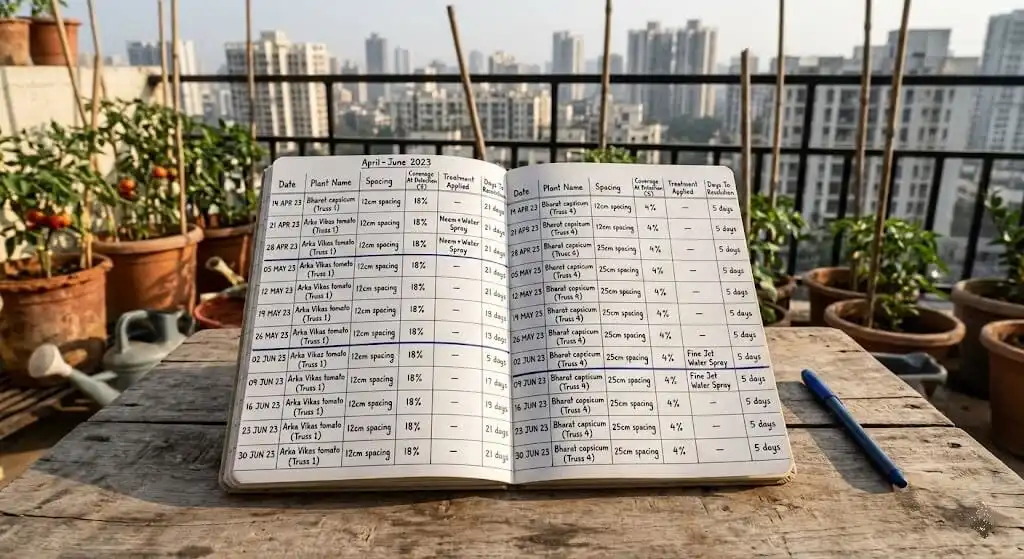 April - June 2023
Date Plant Name Spacing Coverage At Delection (S) Treatment Applied Days To Resolution
14 APR 23 Bharat capsicum (Truss 1) 12cm spacing 18% — 21 days
21 APR 23 Arka Vikas tomato (Truss 1) 12cm spacing 18% Neem + Water Spray 21 days
28 APR 23 Arka Vikas tomato (Truss 1) 12cm spacing 18% Neem + Water Spray 21 days
05 MAY 23 Arka Vikas tomato (Truss 1) 12cm spacing 18% — 21 days
12 MAY 23 Arka Vikas tomato (Truss 1) 12cm spacing 18% — 21 days
19 MAY 23 Arka Vikas tomato (Truss 1) 12cm spacing 18% — days
26 MAY 23 Arka Vikas tomato (Truss 1) 12cm spacing 18% — days
02 JUN 23 Arka Vikas tomato (Truss 1) 12cm spacing 18% — 5 days
09 JUN 23 Arka Vikas tomato (Truss 1) 12cm spacing 18% — 17 days
16 JUN 23 Arka Vikas tomato (Truss 1) 12cm spacing 18% — 19 days
23 JUN 23 Arka Vikas tomato (Truss 1) 12cm spacing 18% — 21 days
30 JUN 23 Arka Vikas tomato (Truss 1) 12cm spacing 18% — 21 days
Date Plant Name Spacing Coverage At Delection (S) Treatment Applied Days To Resolution
14 APR 23 Bharat capsicum (Truss 4) 12cm spacing 4% — 5 days
21 APR 23 Bharat capsicum (Truss 4) 12cm spacing 4% — 5 days
28 APR 23 Bharat capsicum 25cm spacing 4% — 5 days
05 MAY 23 Bharat capsicum (Truss 4) 25cm spacing 4% — 5 days
12 MAY 23 Bharat capsicum (Truss 4) 25cm spacing 4% — 5 days
19 MAY 23 Bharat capsicum (Truss 4) 25cm spacing 4% — 5 days
26 MAY 23 Bharat capsicum (Truss 4) 25cm spacing 4% — 5 days
02 JUN 23 Bharat capticum (Truss 4) 25cm spacing 4% Fine Jet Water Spray 5 days
09 JUN 23 Bharat capsicum (Truss 4) 25cm spacing 4% Fine Jet Water Spray 5 days
16 JUN 23 Bharat capsicum (Truss 4) 25cm spacing 4% — 5 days
23 JUN 23 Bharat capsicum (Truss 4) 25cm spacing 4% — 5 days
30 JUN 23 Bharat capsicum (Truss 4) 25cm spacing 4% — 5 days